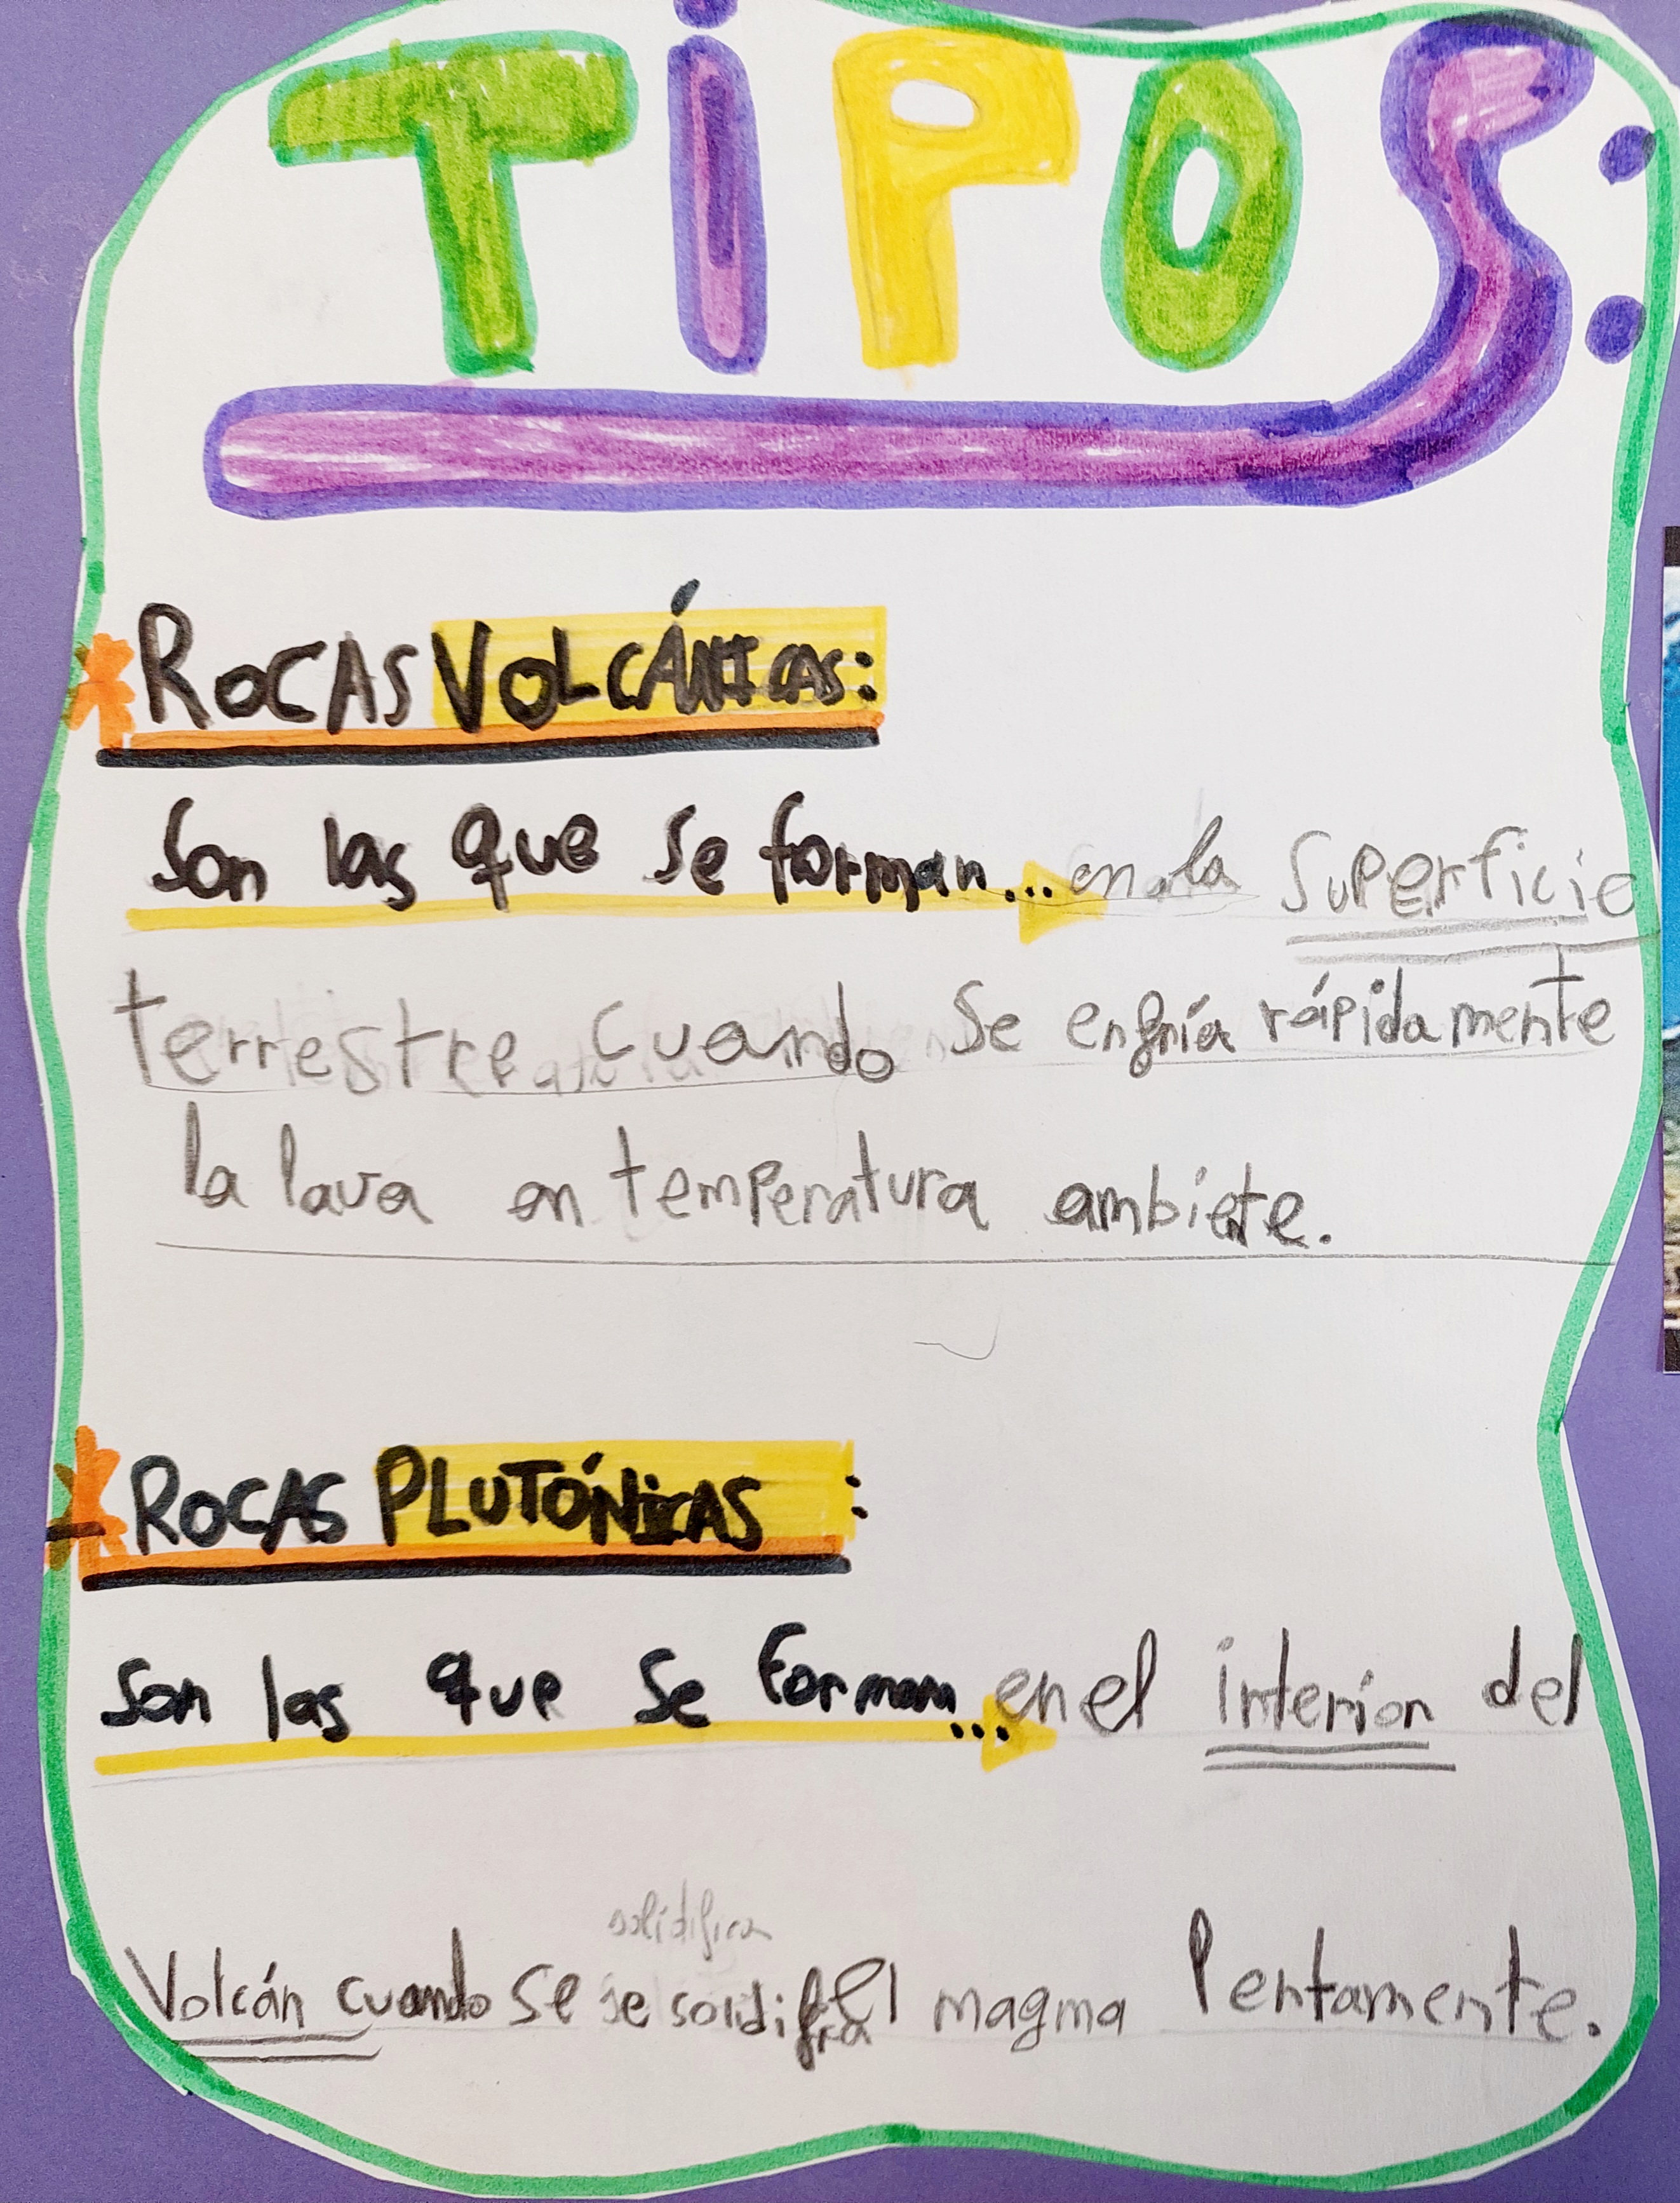 TiPOS:
* ROCAS VOLCÁNICAS:
Son las que se forman... en la superficie
terrestre cuando se enfría rápidamente
la lava en temperatura ambiete.
* ROCAS PLUTÓNICAS :
Son las que se forman... en el interior del
solidifica
Volcán cuando se se solidifica el magma lentamente.